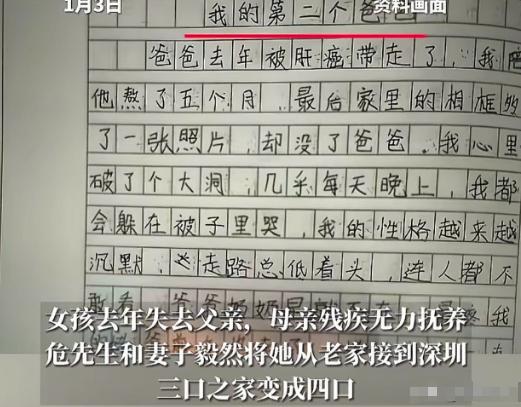 1月3日
资料画面
我的第二个爸爸
爸爸去年被肝癌带走了，我陪
他熬了五个月，最后家里的相框多
了一张照片，却没了爸爸。我心里
破了个大洞，几乎每天晚上，我都
会躲在被子里哭，我的性格越来越
沉默，走路总低着头，连人都不
敢看。爸爸
女孩去年失去父亲，母亲残疾无力抚养
危先生和妻子毅然将她从老家接到深圳
三口之家变成四口